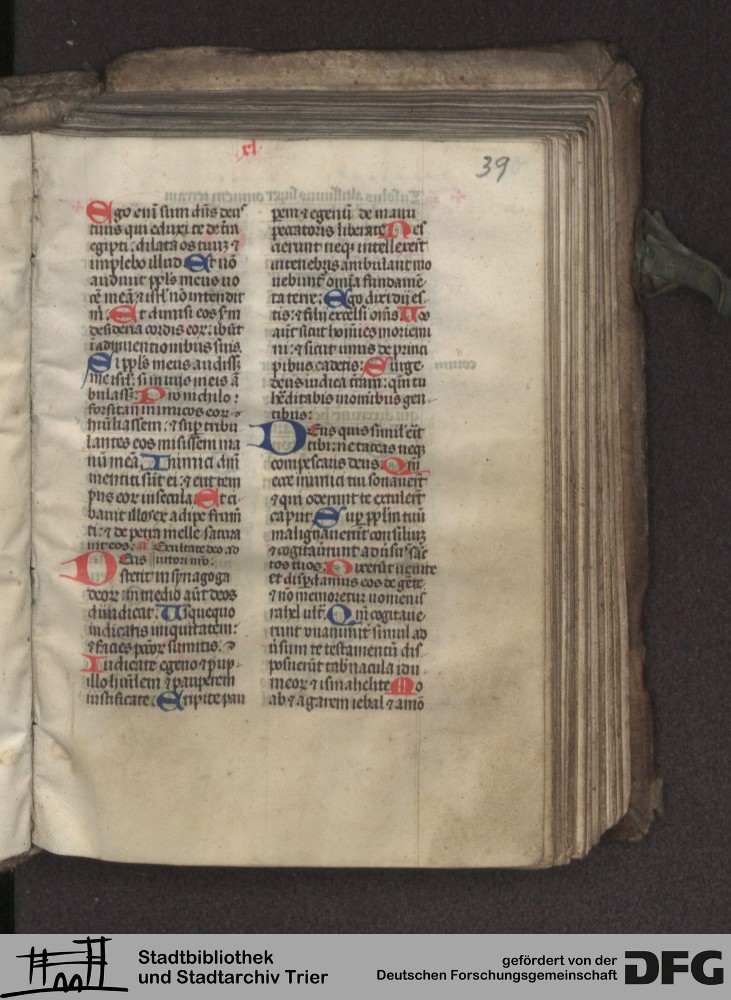 xl.
39
Ego eni sum dns deus
tuus qui eduxi te de tra
egipti : dilata os tuuz ⁊
implebo illud Et nō
audiuit ppls meus uo
cē meā : ⁊ isrl nō intendit
m. Et dimisi eos sm
desideria cordis eor : ibūt
ī adinuentionibus suis.
Si ppls meus audissz
me isrl : si in uijs meis ā
bulassz. Pro nichilo :
forsitan inimicos eor
hūiliassem : ⁊ sup tribu
lantes eos misissem ma
nū meā. Inimici dni
mentiti sūt ei : ⁊ erit tem
pus eor in secula Et ci
bauit illos ex adipe frum
ti : ⁊ de petra melle satura
uit eos. Exultate deo ad
Deus iutori nro.
stetit in synagoga
deor : in medio aūt deos
diiudicat. Usquequo
iudicatis iniquitatem :
⁊ facies pctor sumitis.
Iudicate egeno ⁊ pup
illo hūilem ⁊ pauperem
iustificate. Eripite pau
perem ⁊ egenū de manu
peccatoris liberate Nes
cierunt neqz intellexerūt
in tenebris ambulant mo
uebunt omia fundamē
ta terre. Ego dixi dij es
tis : ⁊ filij excelsi oms Uos
aūt sicut homies moriemi
ni : ⁊ sicut unus de princi
pibus cadetis : Surge
deus iudica tram : qm tu
hēditabis in omibus gen
tibus :
Deus quis simil erit
tibi : ne taceas neqz
compescaris deus. Qm
ecce inimici tui sonauerūt
⁊ qui oderunt te extulerūt
caput Sup pplm tuū
malignauerūt consiliuz
⁊ cogitauerunt aduersus sāc
tos tuos. Dixerūt uenite
et disperdamus eos de gēte
⁊ nō memoretur nomen is
rahel ultra. Qm cogitaue
runt unanimit simul ad
uersum te testamentū dis
posuerūt tabnacula idu
meor ⁊ ismahelite Mo
ab ⁊ agareni iebal ⁊ amō
Stadtbibliothek
und Stadtarchiv Trier
gefördert von der
Deutschen Forschungsgemeinschaft
DFG